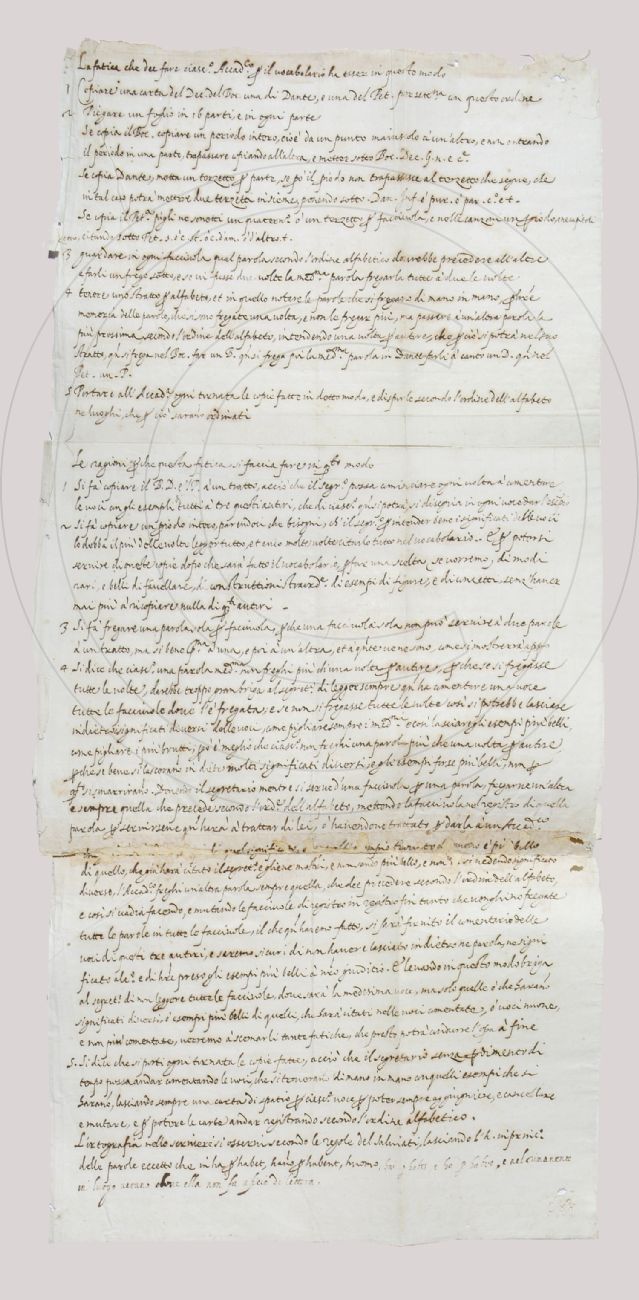 La fatica che dee fare ciasc.º Accad.co p il vocabolario ha esser in questo modo
1 Copiare una carta del Dec. del Boc. una di Dante, e una del Pet. per settim.a con questo ordine
2 Piegare un foglio in 16 parti, e in ogni parte
Se copia il Boc. copiare un periodo intero, cioè da un punto maiuscolo a un'altro, e non entrando
il periodo in una parte, trapassare copiando all'altra, e metter sotto Boc. Dec. G. n. e c.
Se copia Dante, metta un terzetto p parte, se pò il piodo non trapassasse al terzetto che segue, che
in tal caso potrà mettere due terzetti insieme, ponendo sotto. Dan. Inf. ò pur. ò par. c. et.
Se copia il Pet.
citando sotto Pet. s. ò c. st. ò c. dam. ò d'altro. t.
3 guardare in ogni facciuola qual parola secondo l'ordine alfabetico dovrebbe precedere all'altre
e farli un frego sotto, e se vi fusse due volte la med.ma parola fregarla tutte a due le volte
4 tenere uno stratto p alfabeto, et in quello notare le parole che si fregano di mano in mano, p
memoria delle parole, che si sono fregate una volta, e non le fregar più, ma passare a un'altra parola la
più prossima secondo l'ordine dell'alfabeto, intendendo una volta p autore, che p ciò si potrà nel suo
stratto, qñ si frega nel Boc. far un B. qñ si frega poi la med.ma parola in Dante farli à canto un D. qñ nel
Pet. un. P.
5 Portare all'Accad.ª ogni tornata le copie fatte in detto modo, e disporle secondo l'ordine dell'alfabeto
ne luoghi, che p ciò saranno ordinati
Le ragioni pche questa fatica si faccia fare in q.to modo
1 Si fà copiare il B. D. e 'l P. à un tratto, acciò che il segr.º possa cominciare ogni volta à comentare
le voci con gli esempli tutti à tre questi autori, che di ciasc.º qñ si potrà, si dia copia in ogni voce
2 Si fà copiare un piodo intero, parendoci che bisogni, ch' il segr.º p intender bene i significati delle voci
lo debba il più delle volte legger tutto, et anco molte volte citarlo tutto nel vocabolario. E p potersi
servire di queste copie dopo che sarà fatto il vocabolario, p far una scelta, se vorremo, di modi
rari, e belli di favellare, di construttioni straord.e di esempi di figure, e di concetti, senz'haver
mai più à ricopiare nulla di q.ti autori
3 Si fà fregare una parola sola p facciuola, pche una facciuola sola non può servire à due parole
à un tratto, ma sì bene p.ma à una, e poi à un'altra, et a
4 Si dice che ciasc.º una parola med.ma non freghi più di una volta p autore, pche se si fregasse
tutte le volte, darebbe troppo gran briga al segret.º di legger sempre qñ ha comentare una voce
tutte le facciuole dove l'è fregata, e se non si fregasse tutte le volte così si potrebbe lasciare
indietro significati diversi delle voci, come pigliare sempre i med.mi e così lasciar gli esempi più belli
come pigliare i più brutti, pò è meglio che ciasc.º non freghi una parola più che una volta p autore
pche se bene si lascerãno indietro molti significati diversi, e gli esempi forse più belli, non p
q.to si smarrirãno. Dovendo il segretario mentre si serve d'una facciuola p una parola, fregarne un'altra
e sempre quella che precede secondo l'ord.e dell'alfabeto, mettendo la facciuola nel registro di quella
parola p servirsene qñ harà à trattar di lei, ò havendone trattato p darla à un Accad.co
il quel significato, e
di quello, che qñ harà citato il segret.º e gliene mostri, e comendo più bello, e non
diverse, l'Accad.º freghi un'altra parola sempre quella, che dee precedere secondo l'ordin dell'alfabeto,
e così si vadia facendo, e mutando le facciuole di registro in registro fin tanto che non ghino fregate
tutte le parole in tutte le facciuole, il che qñ haremo fatto, si sarà finito il comentorio delle
voci di questi tre autori, e saremo sicuri di non havere lasciato indietro ne parola, ne signi
ficato alc.º e di hre preso gli esempi più belli à nrõ giuditio. E levando in questo modo briga
al segret.º di non leggere tutte le facciuole, dove sarà la medesima voce, ma solo quelle ò che haranno
significati diversi, ò esempi più belli di quelli, che sarã citati nelle voci comentate, ò voci nuove,
e non più comentate, verremo à scemarli tante fatiche, che presto potrà condurre l'opa à fine
5. Si dice che si porti ogni tornata le copie fatte, acciò che il segretario senza pdimento di
tempo possa andar comentando le voci, che si troverãno di mano in mano con quelli esempi che si
harano, lasciando sempre una carta di spatio p ciasc.ª voce p poter sempre aggiugniere, e cancellare
e mutare, e p potere le carte andar registrando secondo l'ordine alfabetico.
L'ortografia nello scrivere si osservi secondo le regole del Salviati, lasciando l'h. in princ.º
delle parole eccetto che in ha, p habet, hanno p habent, huomo,
in luogo veruno dove ella non fa uficio di lettera.